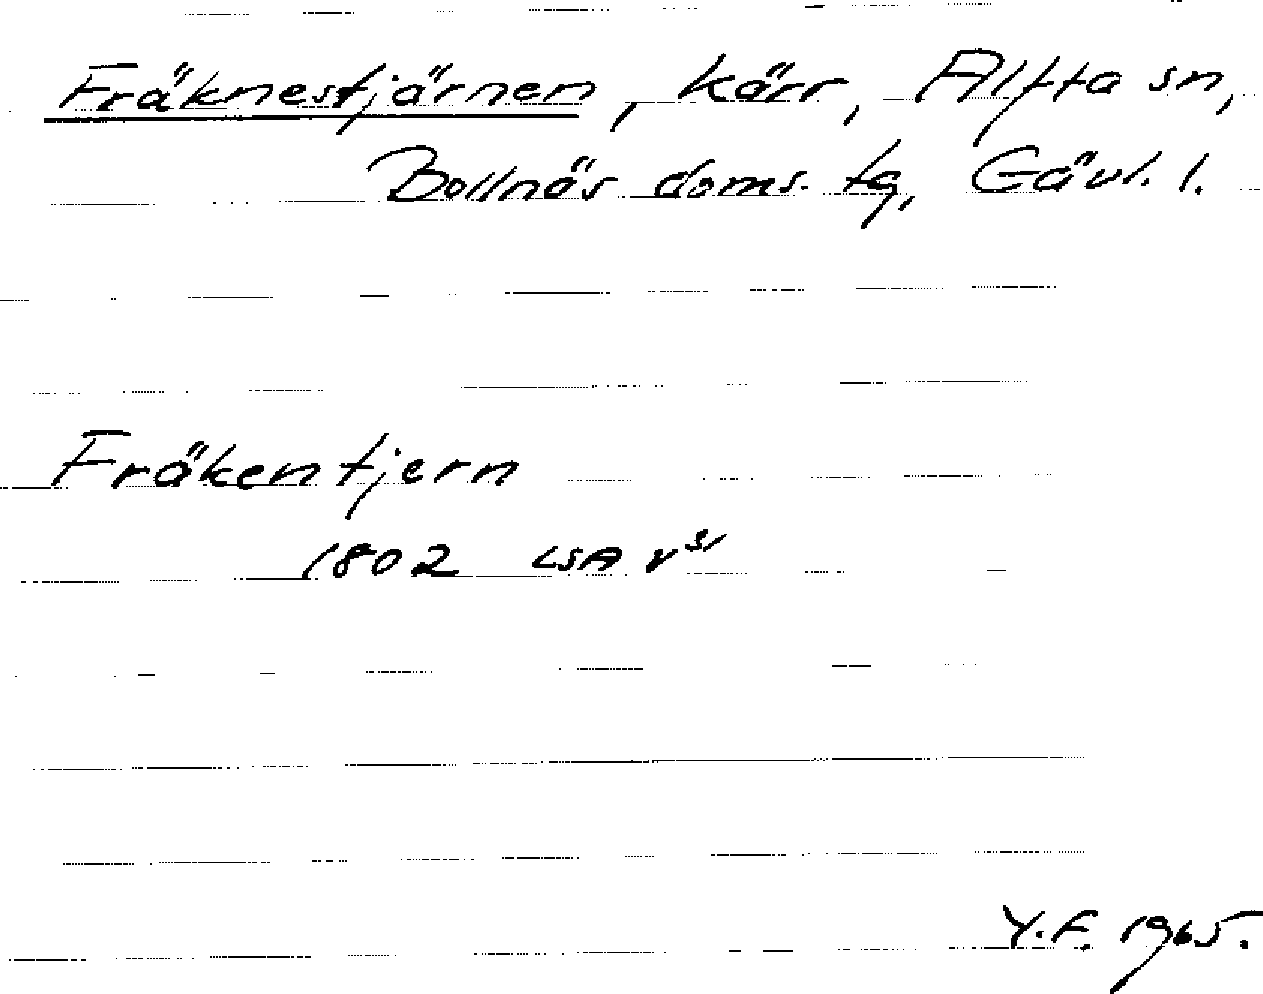 Fräknestjärnen, kärr, Alfta sn,
Bollnäs doms. tg, Gävl. l.
Fräkentjern
1802 LSA
Y.F. 1965.